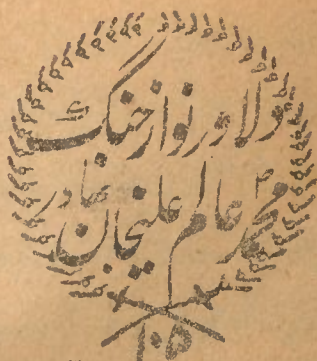 دلاور نواز جنگ
محمد عالم علیخان بہادر
۱۰۵